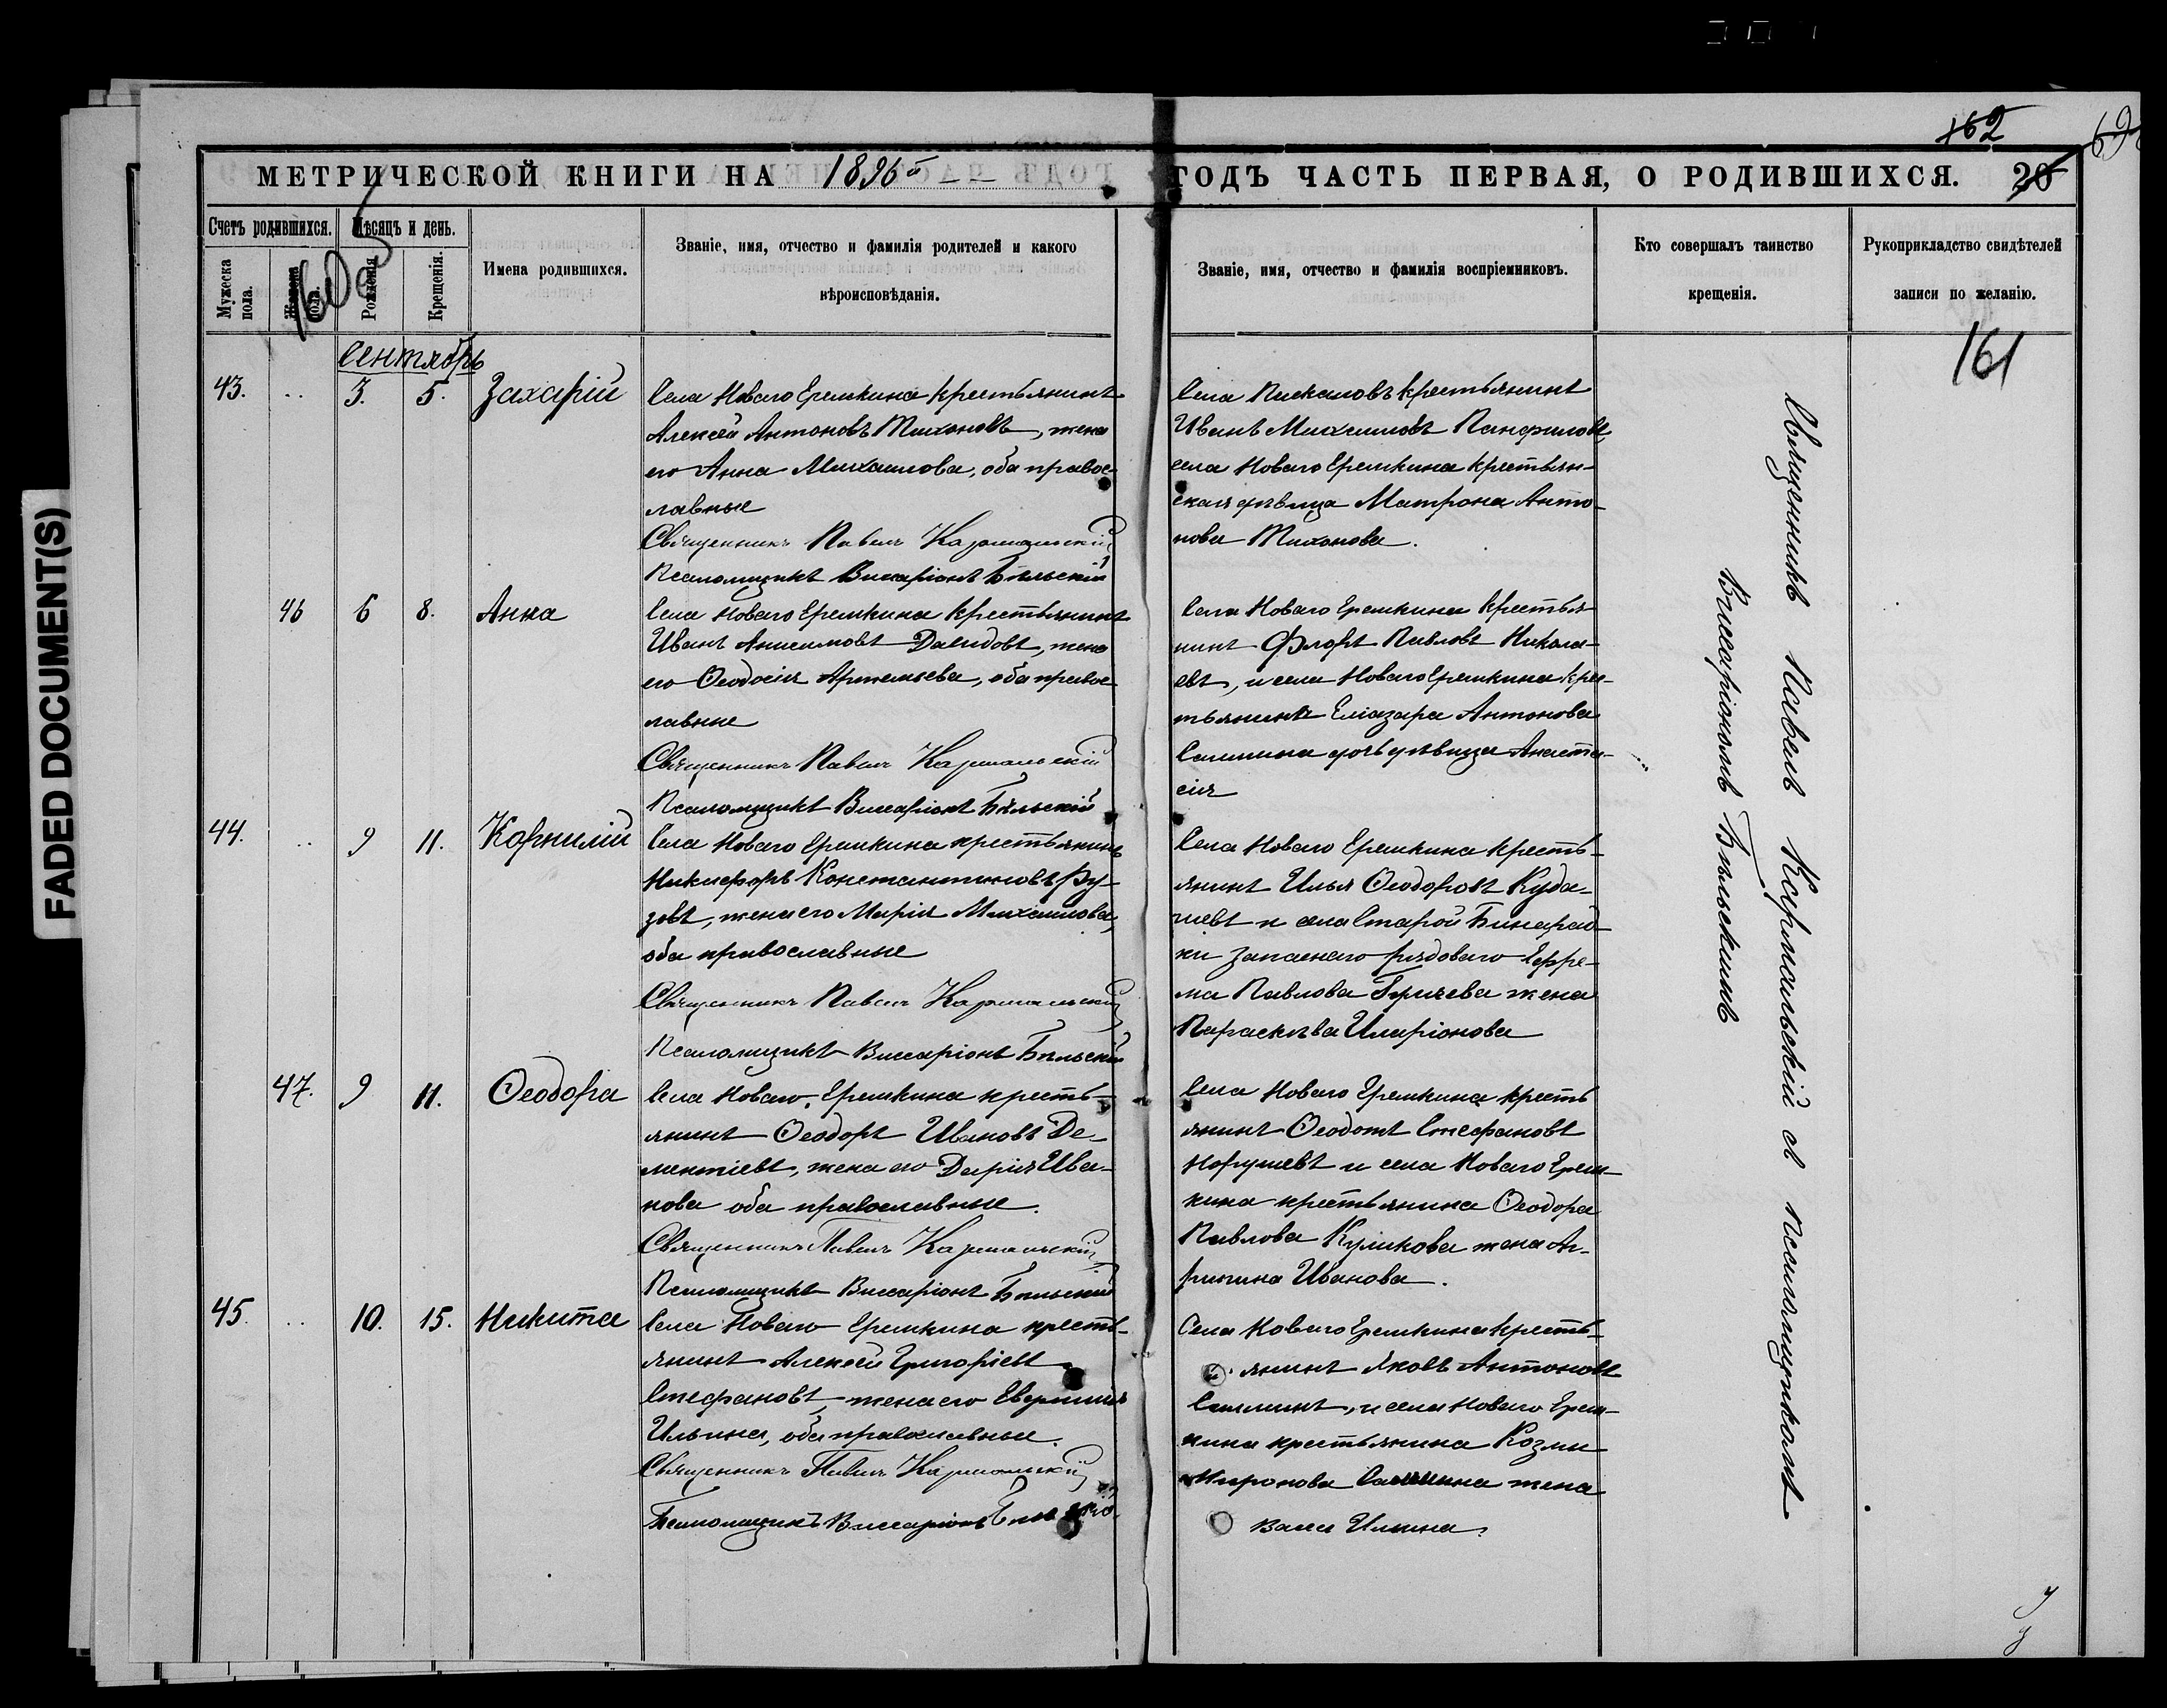 162
69
МЕТРИЧЕСКОЙ КНИГИ НА 1896й
ГОДЪ ЧАСТЬ ПЕРВАЯ, О РОДИВШИХСЯ. 20
Счетъ родившихся.
Мѣсяцъ и день.
Мужеска пола.
Женска пола.
Рожденія
Крещенія.
Имена родившихся.
Званіе, имя, отчество и фамилія родителей и какого
вѣроисповѣданія.
Званіе, имя, отчество и фамилія воспріемниковъ.
Кто совершалъ таинство
крещенія.
Рукоприкладство свидѣтелей
записи по желанію.
160
161
Сентябрь
43. .. 3. 5. Захарій
Села Новаго Еремкина крестьянинъ
Алексѣй Антоновъ Тихоновъ, жена
его Анна Михаилова, оба правос-
лавные
Священникъ Павелъ Кармальскій
Псаломщикъ Виссаріонъ Бѣльскій
Села Пискаловъ крестьянинъ
Иванъ Михаиловъ Панфиловъ,
села Новаго Еремкина крестьян-
ская дѣвица Матрона Анто-
нова Тихонова.
46 6 8. Анна
Села Новаго Еремкина крестьянинъ
Иванъ Анисимовъ Давидовъ, жена
его Ѳеодосія Артемьева, оба правос-
лавные
Священникъ Павелъ Кармальскій
Псаломщикъ Виссаріонъ Бѣльскій
Села Новаго Еремкина крестья-
нинъ Флоръ Павловъ Никола-
евъ, и села Новаго Еремкина крес-
тьянина Еліазара Антонова
Салмина дочь дѣвица Анаста-
сія
44. .. 9 11. Корнилій
Села Новаго Еремкина крестьянинъ
Никифоръ Константиновъ Ву-
зовъ, жена его Марія Михаилова,
оба православные
Священникъ Павелъ Кармальскій
Псаломщикъ Виссаріонъ Бѣльскій
Села Новаго Еремкина кресть-
янинъ Илья Ѳеодоровъ Куда-
шевъ и села Старой Бинарад-
ки запаснаго рядоваго Ефре-
ма Павлова жена
Параскева Иларіонова
47. 9 11. Ѳеодора
Села Новаго Еремкина кресть-
янинъ Ѳеодоръ Ивановъ Де-
ментіевъ, жена его Дарія Ива-
нова оба православные.
Священникъ Павелъ Кармальскій
Псаломщикъ Виссаріонъ Бѣльскій
Села Новаго Еремкина кресть
янинъ Ѳеодотъ Стефановъ
и села Новаго Ерем-
кина крестьянина Ѳеодора
Павлова Куликова жена Аг-
рипина Иванова.
45. .. 10. 15. Никита
Села Новаго Еремкина кресть-
янинъ Алексѣй Григоріевъ
Стефановъ, жена его Евдокия
Ильина, оба православные.
Священникъ Павелъ Кармальскій
Псаломщикъ Виссаріонъ Бѣльскій
Села Новаго Еремкина кресть-
янинъ Яковъ Антоновъ
Салминъ, и села Новаго Ерем-
кина крестьянина Козмы
Миронова Салмина жена
Васса Ильина.
Священникъ Павелъ Кармальскій съ псаломщикомъ
Виссаріономъ Бѣльскимъ
FADED DOCUMENT(S)